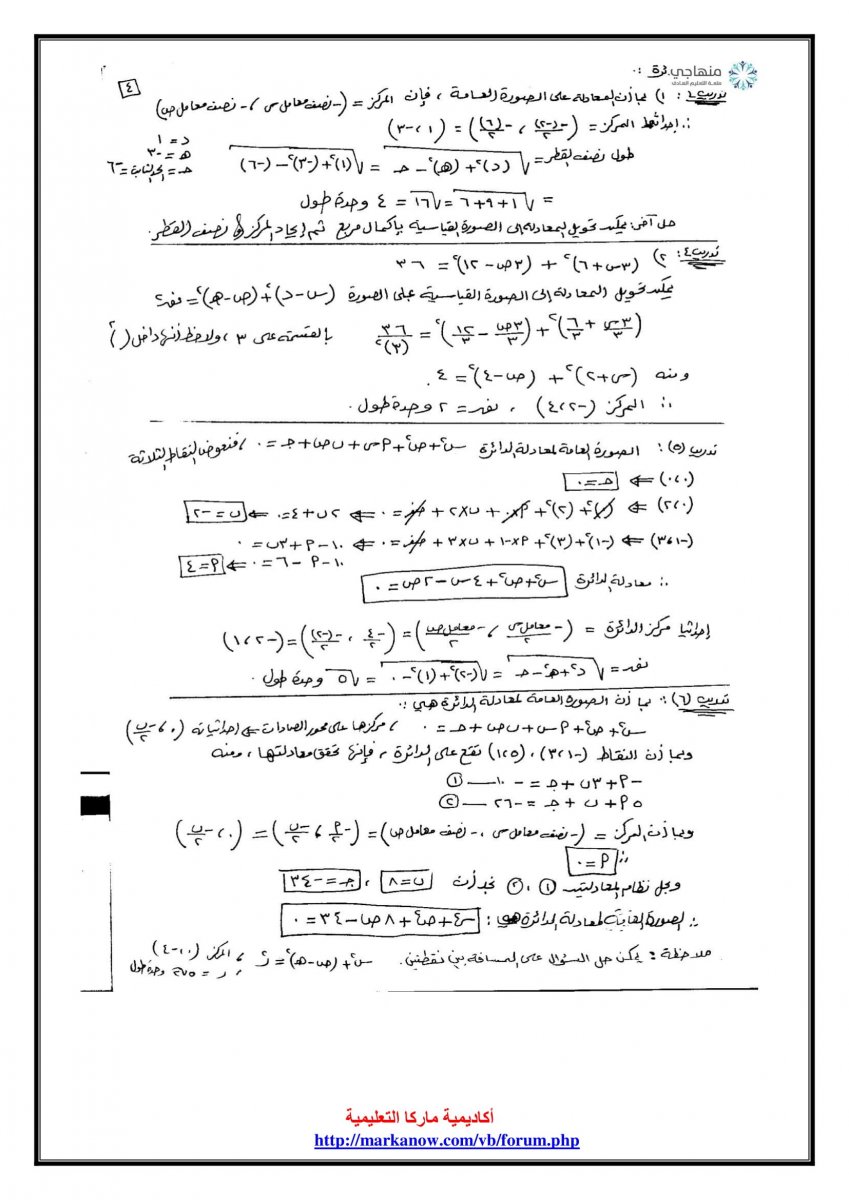 منهاجي
متعة التعليم الهادف
٤
تدريب ٤: ١) بما أن المعادلة على الصورة العامة ، فإن المركز = (-نصف معامل س ، - نصف معامل ص)
∴ إحداثيا المركز = (-(-٢)/٢ ، -(٦)/٢) = (١ ، -٣)
د = ١
هـ = -٣
جـ = الحد الثابت = -٦
طول نصف القطر = √((د)² + (هـ)² - جـ) = √((١)² + (-٣)² - (-٦))
= √(١+٩+٦) = √١٦ = ٤ وحدة طول
حل آخر: يمكن تحويل المعادلة إلى الصورة القياسية بإكمال مربع ثم إيجاد المركز و نصف القطر.
تدريب ٤: ٢) (٣س+٦)² + (٣ص-١٢)² = ٣٦
يمكن تحويل المعادلة إلى الصورة القياسية على الصورة (س-د)² + (ص-هـ)² = نق²
(٣س/٣ + ٦/٣)² + (٣ص/٣ - ١٢/٣)² = ٣٦/(٣)² بالقسمة على ٣ ، ولاحظ أنها داخل ( )²
ومنه (س+٢)² + (ص-٤)² = ٤
∴ المركز (-٢ ، ٤) ، نق = ٢ وحدة طول.
تدريب (٥): الصورة العامة لمعادلة الدائرة س² + ص² + أس + ب ص + جـ = ٠ ، فنعوض النقاط الثلاثة
(٠،٠) ⇐ جـ = ٠
(٠،٢) ⇐ (٠)² + (٢)² + أ×٠ + ب×٢ + جـ = ٠ ⇐ ٢ب + ٤ = ٠ ⇐ ب = -٢
(-١،٣) ⇐ (-١)² + (٣)² + أ×-١ + ب×٣ + جـ = ٠ ⇐ ١٠ - أ + ٣ب = ٠
١٠ - أ - ٦ = ٠ ⇐ أ = ٤
∴ معادلة الدائرة س² + ص² + ٤س - ٢ص = ٠
إحداثيا مركز الدائرة = (-معامل س/٢ ، -معامل ص/٢) = (-٤/٢ ، -(-٢)/٢) = (-٢ ، ١)
نق = √(د² + هـ² - جـ) = √((-٢)² + (١)² - ٠) = √٥ وحدة طول.
تدريب (٦): بما أن الصورة العامة لمعادلة الدائرة هي:
س² + ص² + أس + ب ص + جـ = ٠ ، مركزها على محور الصادات ⇐ إحداثياته (٠ ، -ب/٢)
وبما أن النقاط (-١،٣) ، (٥،١) تقع على الدائرة ، فإنها تحقق معادلتها ، ومنه
-أ + ٣ب + جـ = -١٠ — ①
٥أ + ب + جـ = -٢٦ — ②
وبما أن المركز = (-نصف معامل س ، - نصف معامل ص) = (-أ/٢ ، -ب/٢) = (٠ ، -ب/٢)
∴ أ = ٠
وبحل نظام المعادلتين ① ، ② نجد أن ب = ٨ ، جـ = -٣٤
∴ الصورة العامة لمعادلة الدائرة هي: س² + ص² + ٨ص - ٣٤ = ٠
ملاحظة: يمكن حل السؤال على المسافة بين نقطتين. س² + (ص-هـ)² = ر² ، المركز (٠ ، -٤)
، ر = ٥√٢ وحدة طول
أكاديمية ماركا التعليمية
http://markanow.com/vb/forum.php